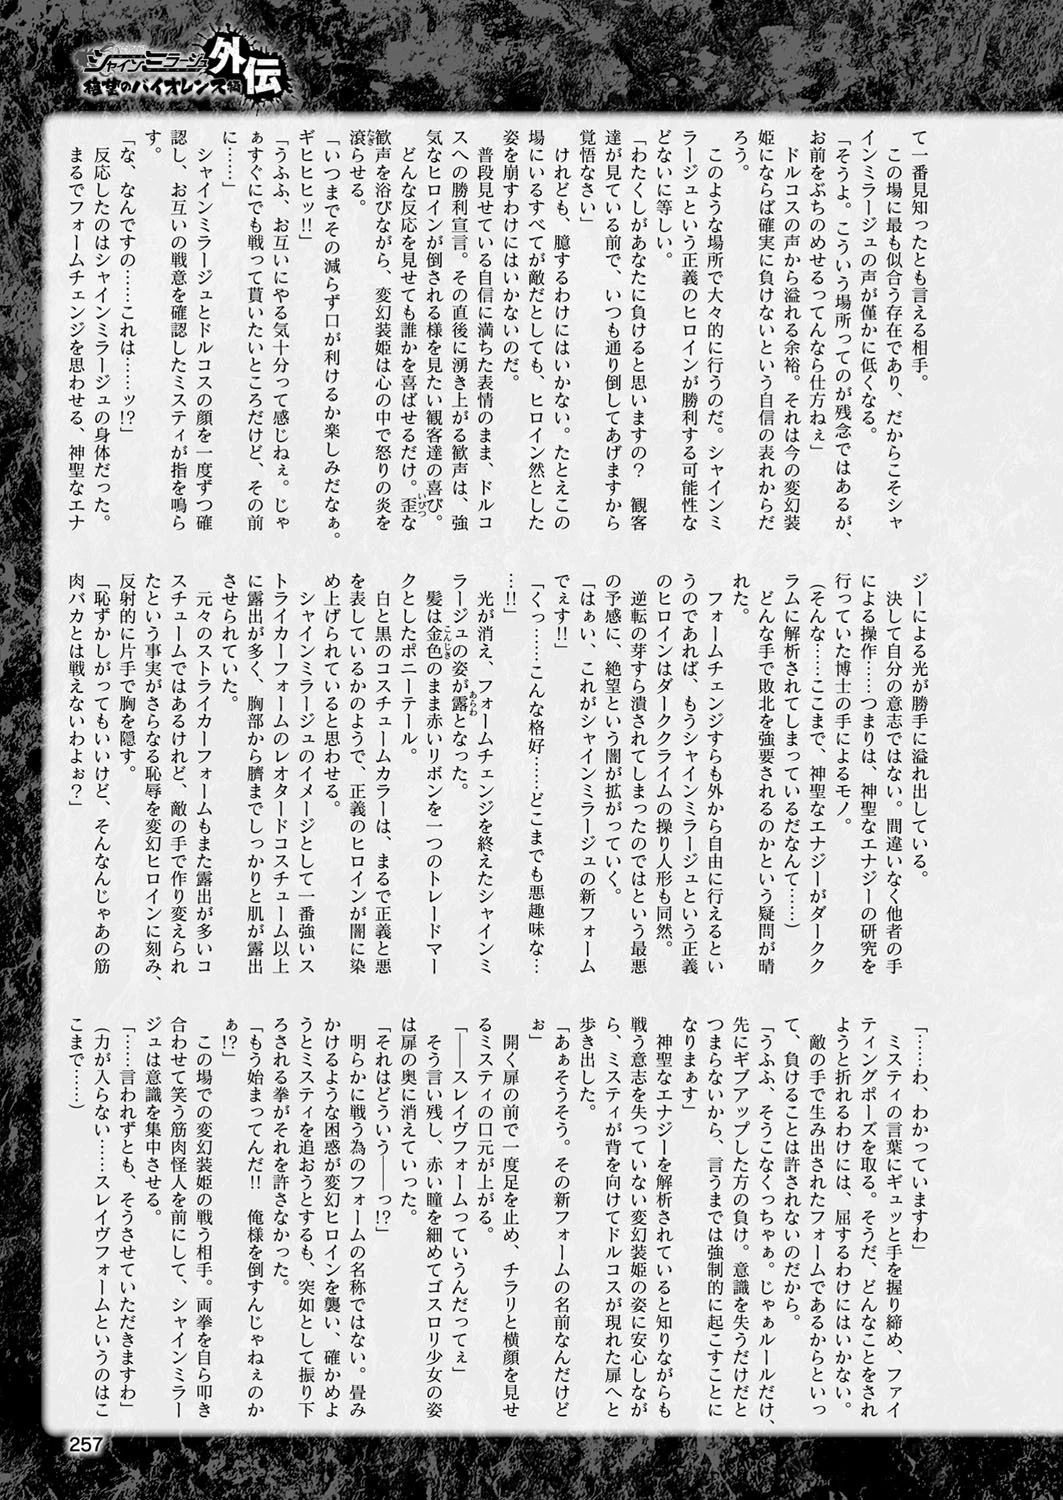 シャインミラージュ外伝
のバイオレンス
て一番見知ったとも言える相手。
この場に最も似合う存在であり、だからこそシャ
インミラージュの声が僅かに低くなる。
「そうよ。こういう場所ってのが残念ではあるが、
お前をぶちのめせるってんなら仕方ねぇ」
ドルコスの声から溢れる余裕。それは今の変幻装
姫にならば確実に負けないという自信の表れからだ
ろう。
このような場所で大々的に行うのだ。シャインミ
ラージュという正義のヒロインが勝利する可能性な
どないに等しい。
「わたくしがあなたに負けると思いますの？　観客
達が見ている前で、いつも通り倒してあげますから
覚悟なさい」
けれども、臆するわけにはいかない。たとえこの
場にいるすべてが敵だとしても、ヒロイン然とした
姿を崩すわけにはいかないのだ。
普段見せている自信に満ちた表情のまま、ドルコ
スへの勝利宣言。その直後に湧き上がる歓声は、強
気なヒロインが倒される様を見たい観客達の喜び。
どんな反応を見せても誰かを喜ばせるだけ。歪な
歓声を浴びながら、変幻装姫は心の中で怒りの炎を
滾らせる。
「いつまでその減らず口が利けるか楽しみだなぁ。
ギヒヒヒッ!!」
「うふふ、お互いにやる気十分って感じねぇ。じゃ
ぁすぐにでも戦って貰いたいところだけど、その前
に……」
シャインミラージュとドルコスの顔を一度ずつ確
認し、お互いの戦意を確認したミスティが指を鳴ら
す。
「な、なんですの……これは……ッ!?」
反応したのはシャインミラージュの身体だった。
まるでフォームチェンジを思わせる、神聖なエナ
ジーによる光が勝手に溢れ出している。
決して自分の意志ではない。間違いなく他者の手
による操作……つまりは、神聖なエナジーの研究を
行っていた博士の手によるモノ。
(そんな……ここまで、神聖なエナジーがダークク
ラムに解析されてしまっているだなんて……)
どんな手で敗北を強要されるのかという疑問が晴
れた。
フォームチェンジすらも外から自由に行えるとい
うのであれば、もうシャインミラージュという正義
のヒロインはダーククライムの操り人形も同然。
逆転の芽すら潰されてしまったのではという最悪
の予感に、絶望という闇が拡がっていく。
「はぁい、これがシャインミラージュの新フォーム
でぇす!!」
「くっ……こんな格好……どこまでも悪趣味な…
…!!」
光が消え、フォームチェンジを終えたシャインミ
ラージュの姿が露となった。
髪は金色のまま赤いリボンを一つのトレードマー
クとしたポニーテール。
白と黒のコスチュームカラーは、まるで正義と悪
を表しているかのようで、正義のヒロインが闇に染
め上げられていると思わせる。
シャインミラージュのイメージとして一番強いス
トライカーフォームのレオタードコスチューム以上
に露出が多く、胸部から臍までしっかりと肌が露出
させられていた。
元々のストライカーフォームもまた露出が多いコ
スチュームではあるけれど、敵の手で作り変えられ
たという事実がさらなる恥辱を変幻ヒロインに刻み、
反射的に片手で胸を隠す。
「恥ずかしがってもいいけど、そんなんじゃあの筋
肉バカとは戦えないわよぉ？」
「……わ、わかっていますわ」
ミスティの言葉にギュッと手を握り締め、ファイ
ティングポーズを取る。そうだ、どんなことをされ
ようと折れるわけには、屈するわけにはいかない。
敵の手で生み出されたフォームであるからといっ
て、負けることは許されないのだから。
「うふふ、そうこなくっちゃぁ。じゃぁルールだけ、
先にギブアップした方の負け。意識を失うだけだと
つまらないから、言うまでは強制的に起こすことに
なりまぁす」
神聖なエナジーを解析されていると知りながらも
戦う意志を失っていない変幻装姫の姿に安心しなが
ら、ミスティが背を向けてドルコスが現れた扉へと
歩き出した。
「あぁそうそう。その新フォームの名前なんだけど
ぉ」
開く扉の前で一度足を止め、チラリと横顔を見せ
るミスティの口元が上がる。
「――スレイヴフォームっていうんだってぇ」
そう言い残し、赤い瞳を細めてゴスロリ少女の姿
は扉の奥に消えていった。
「それはどういう――っ!?」
明らかに戦う為のフォームの名称ではない。畳み
かけるような困惑が変幻ヒロインを襲い、確かめよ
うとミスティを追おうとするも、突如として振り下
ろされる拳がそれを許さなかった。
「もう始まってんだ!!　俺様を倒すんじゃねぇのか
ぁ!?」
この場での変幻装姫の戦う相手。両拳を自ら叩き
合わせて笑う筋肉怪人を前にして、シャインミラー
ジュは意識を集中させる。
「……言われずとも、そうさせていただきますわ」
(力が入らない……スレイヴフォームというのはこ
こまで……)
257